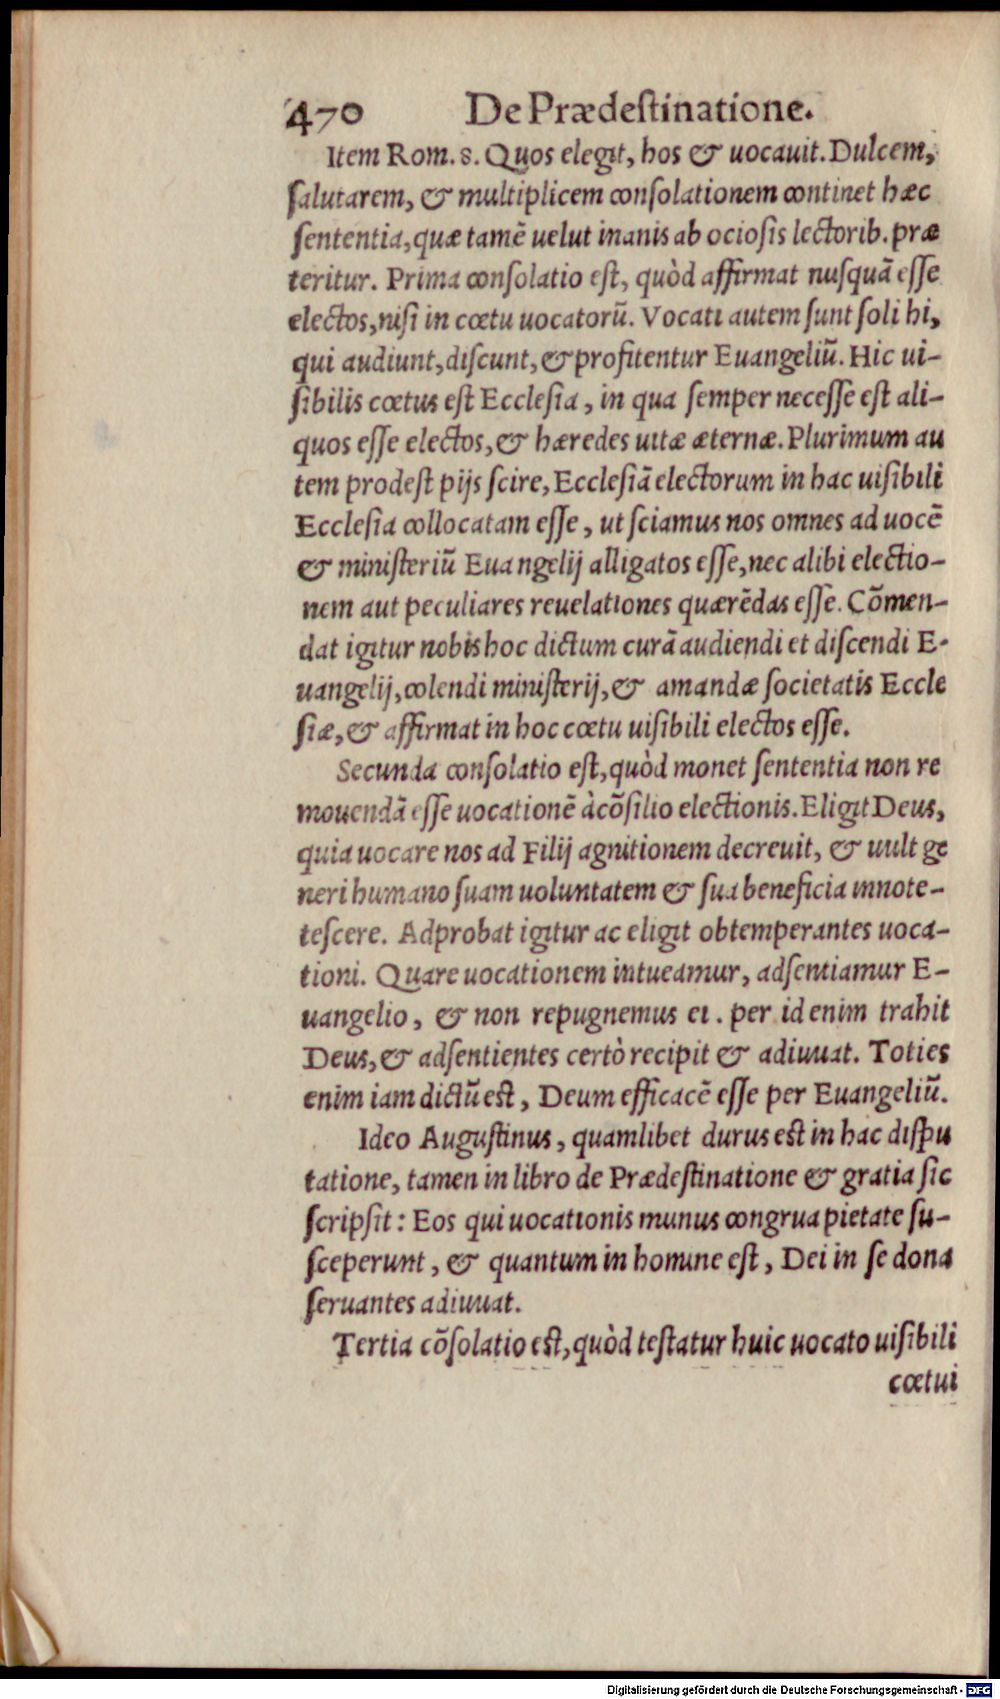 470 De Prædeſtinatione.
Item Rom. 8. Quos elegit, hos & uocauit. Dulcem,
ſalutarem, & multiplicem conſolationem continet hæc
ſententia, quæ tamē uelut inanis ab ocioſis lectorib. præ
teritur. Prima conſolatio eſt, quòd affirmat nuſquā eſſe
electos, niſi in cœtu uocatorū. Vocati autem ſunt ſoli hi,
qui audiunt, diſcunt, & profitentur Euangeliū. Hic ui-
ſibilis cœtus eſt Eccleſia, in qua ſemper neceſſe eſt ali-
quos eſſe electos, & hæredes uitæ æternæ. Plurimum au
tem prodeſt pijs ſcire, Eccleſiā electorum in hac uiſibili
Eccleſia collocatam eſſe, ut ſciamus nos omnes ad uocē
& miniſteriū Euangelij alligatos eſſe, nec alibi electio-
nem aut peculiares reuelationes quærēdas eſſe. Cōmen-
dat igitur nobis hoc dictum curā audiendi et diſcendi E-
uangelij, colendi miniſterij, & amandæ ſocietatis Eccle
ſiæ, & affirmat in hoc cœtu uiſibili electos eſſe.
Secunda conſolatio eſt, quòd monet ſententia non re
mouendā eſſe uocationē à cōſilio electionis. Eligit Deus,
quia uocare nos ad Filij agnitionem decreuit, & uult ge
neri humano ſuam uoluntatem & ſua beneficia innote-
teſcere. Adprobat igitur ac eligit obtemperantes uoca-
tioni. Quare uocationem intueamur, adſentiamur E-
uangelio, & non repugnemus ei. per id enim trahit
Deus, & adſentientes certò recipit & adiuuat. Toties
enim iam dictū eſt, Deum efficacē eſſe per Euangeliū.
Ideo Auguſtinus, quamlibet durus eſt in hac diſpu
tatione, tamen in libro de Prædeſtinatione & gratia ſic
ſcripſit: Eos qui uocationis munus congrua pietate ſu-
ſceperunt, & quantum in homine eſt, Dei in ſe dona
ſeruantes adiuuat.
Tertia cōſolatio eſt, quòd teſtatur huic uocato uiſibili
cœtui
Digitalisierung gefördert durch die Deutsche Forschungsgemeinschaft - DFG